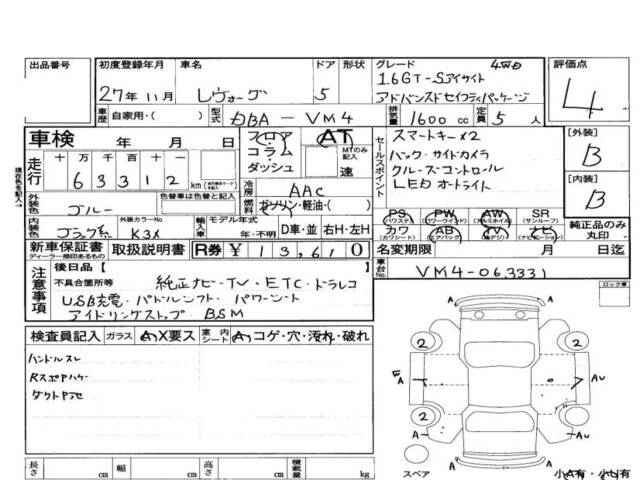 出品番号
初度登録年月
27年11月
車名
レヴォーグ
ドア 形状
5
グレード 4WD
1.6GT-Sアイサイト
アドバンスドセイフティパッケージ
評価点
4
車歴 自家用・( )
型式 DBA - VM4
排気量 1600 cc
定員 5 人
車検 年 月 日
フロア
コラム
ダッシュ
AT
MTのみ記入
速
セールスポイント
スマートキー×2
バック・サイドカメラ
クルーズコントロール
LEDオートライト
[外装]
B
[内装]
B
現在色を記入→
走行 十 万 千 百 十 一
6 3 3 1 2 km
冷房 AAC
外装色 ブルー
色替車は色替と記入
燃料 ガソリン・軽油・( )
内装色 ブラック系
外装カラーNo.
K3X
輸入車
モデル年式
年・不明
D車・並 右H・左H
PS (パワステ)
PW (パワーウインド)
AW (アルミホイル)
SR (サンルーフ)
カワ (カワシート)
AB (エアバッグ)
TV (地デジ)
ナビ (ナビゲーション)
純正品のみ丸印
新車保証書
ディーラー捺印あるもの
取扱説明書
R券 ¥ 13,610
名変期限 月 日迄
注意事項
後日品【 】
不具合箇所等
純正ナビ・TV・ETC・ドラレコ
USB充電・パドルシフト・パワーシート
アイドリングストップ BSM
車台No. VM4-063331
ロック車
検査員記入
ガラス (A)X要ス
室内シート (A)コゲ・穴・汚れ・破れ
ハンドルスレ
2
2
2
2
A
A
A
A
A
A
AU
AU
スペア
小A有・小U有
長さ cm
幅 cm
高さ cm
積載量 kg